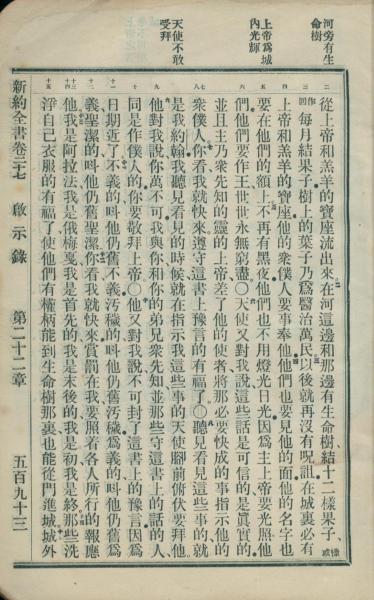 河旁有生
命樹
上帝爲城
內光輝
天使不敢
受拜
從上帝和羔羊的寶座流出來在河這邊和那邊有生命樹結十二樣果子
每月結果子樹上的葉子乃爲醫治萬民以後就再沒有呪詛在城裏必有
上帝和羔羊的寶座他的衆僕人要事奉他他們也要見他的面他的名字也
要在他們的額上不再有黑夜他們也不用燈光日光因爲主上帝要光照他
們他們要作王世世永無窮盡〇天使又對我說這些話是可信的是眞實的
並且主乃衆先知的靈的上帝差了他的使者將那必要快成的事指示他的
衆僕人你看我就快來遵守這書上豫言的有福了〇聽見看見這些事的就
是我約翰我聽見看見的時候就在指示我這些事的天使腳前俯伏要拜他
他對我說你萬不可我與你和你的弟兄衆先知並那些守這書上的話的人
同是作僕人的你要敬拜上帝〇他又對我說不可封了這書上的豫言因爲
日期近了不義的呌他仍舊不義汚穢的呌他仍舊汚穢爲義的呌他仍舊爲
義聖潔的呌他仍舊聖潔你看我就快來賞罰在我要照着各人所行的報應
他我是阿拉法我是俄梅戛我是首先的我是末後的我是初我是終那些洗
淨自己衣服的有福了使他們有權柄能到生命樹那裏也能從門進城城外
新約全書卷二十七 啟示錄 第二十二章 五百九十三